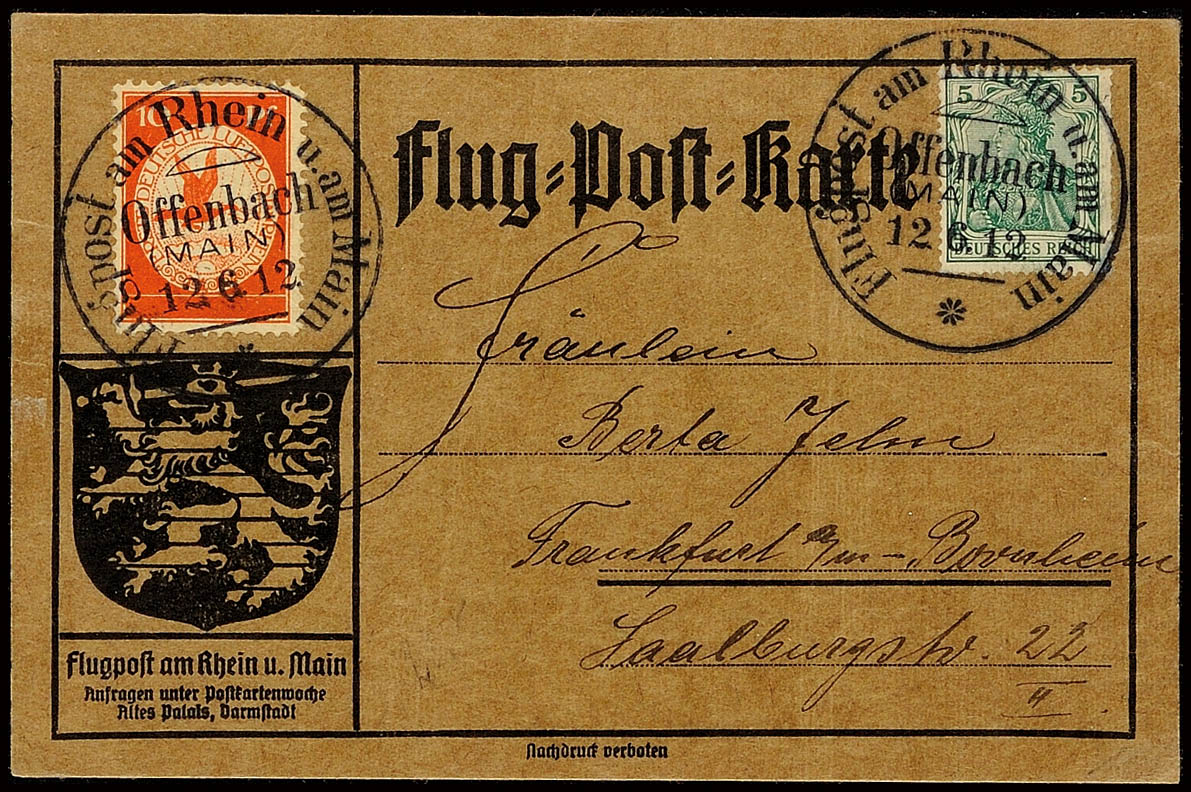 10 Pf
DEUTSCHE LUFTPOST
Flugpost am Rhein u. am Main
Offenbach
(MAIN)
12.6.12
Flug-Post-Karte
5 5
DEUTSCHES REICH
Flugpost am Rhein u. am Main
Offenbach
(MAIN)
12.6.12
Fräulein
Berta Jehn
Frankfurt a/m – Bornheim
Saalburgstr. 22
II
Flugpost am Rhein u. Main
Anfragen unter Postkartenwoche
Altes Palais, Darmstadt
Nachdruck verboten